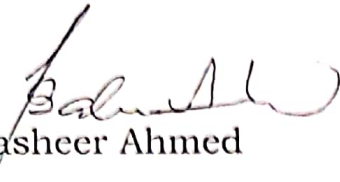 asheer Ahmed